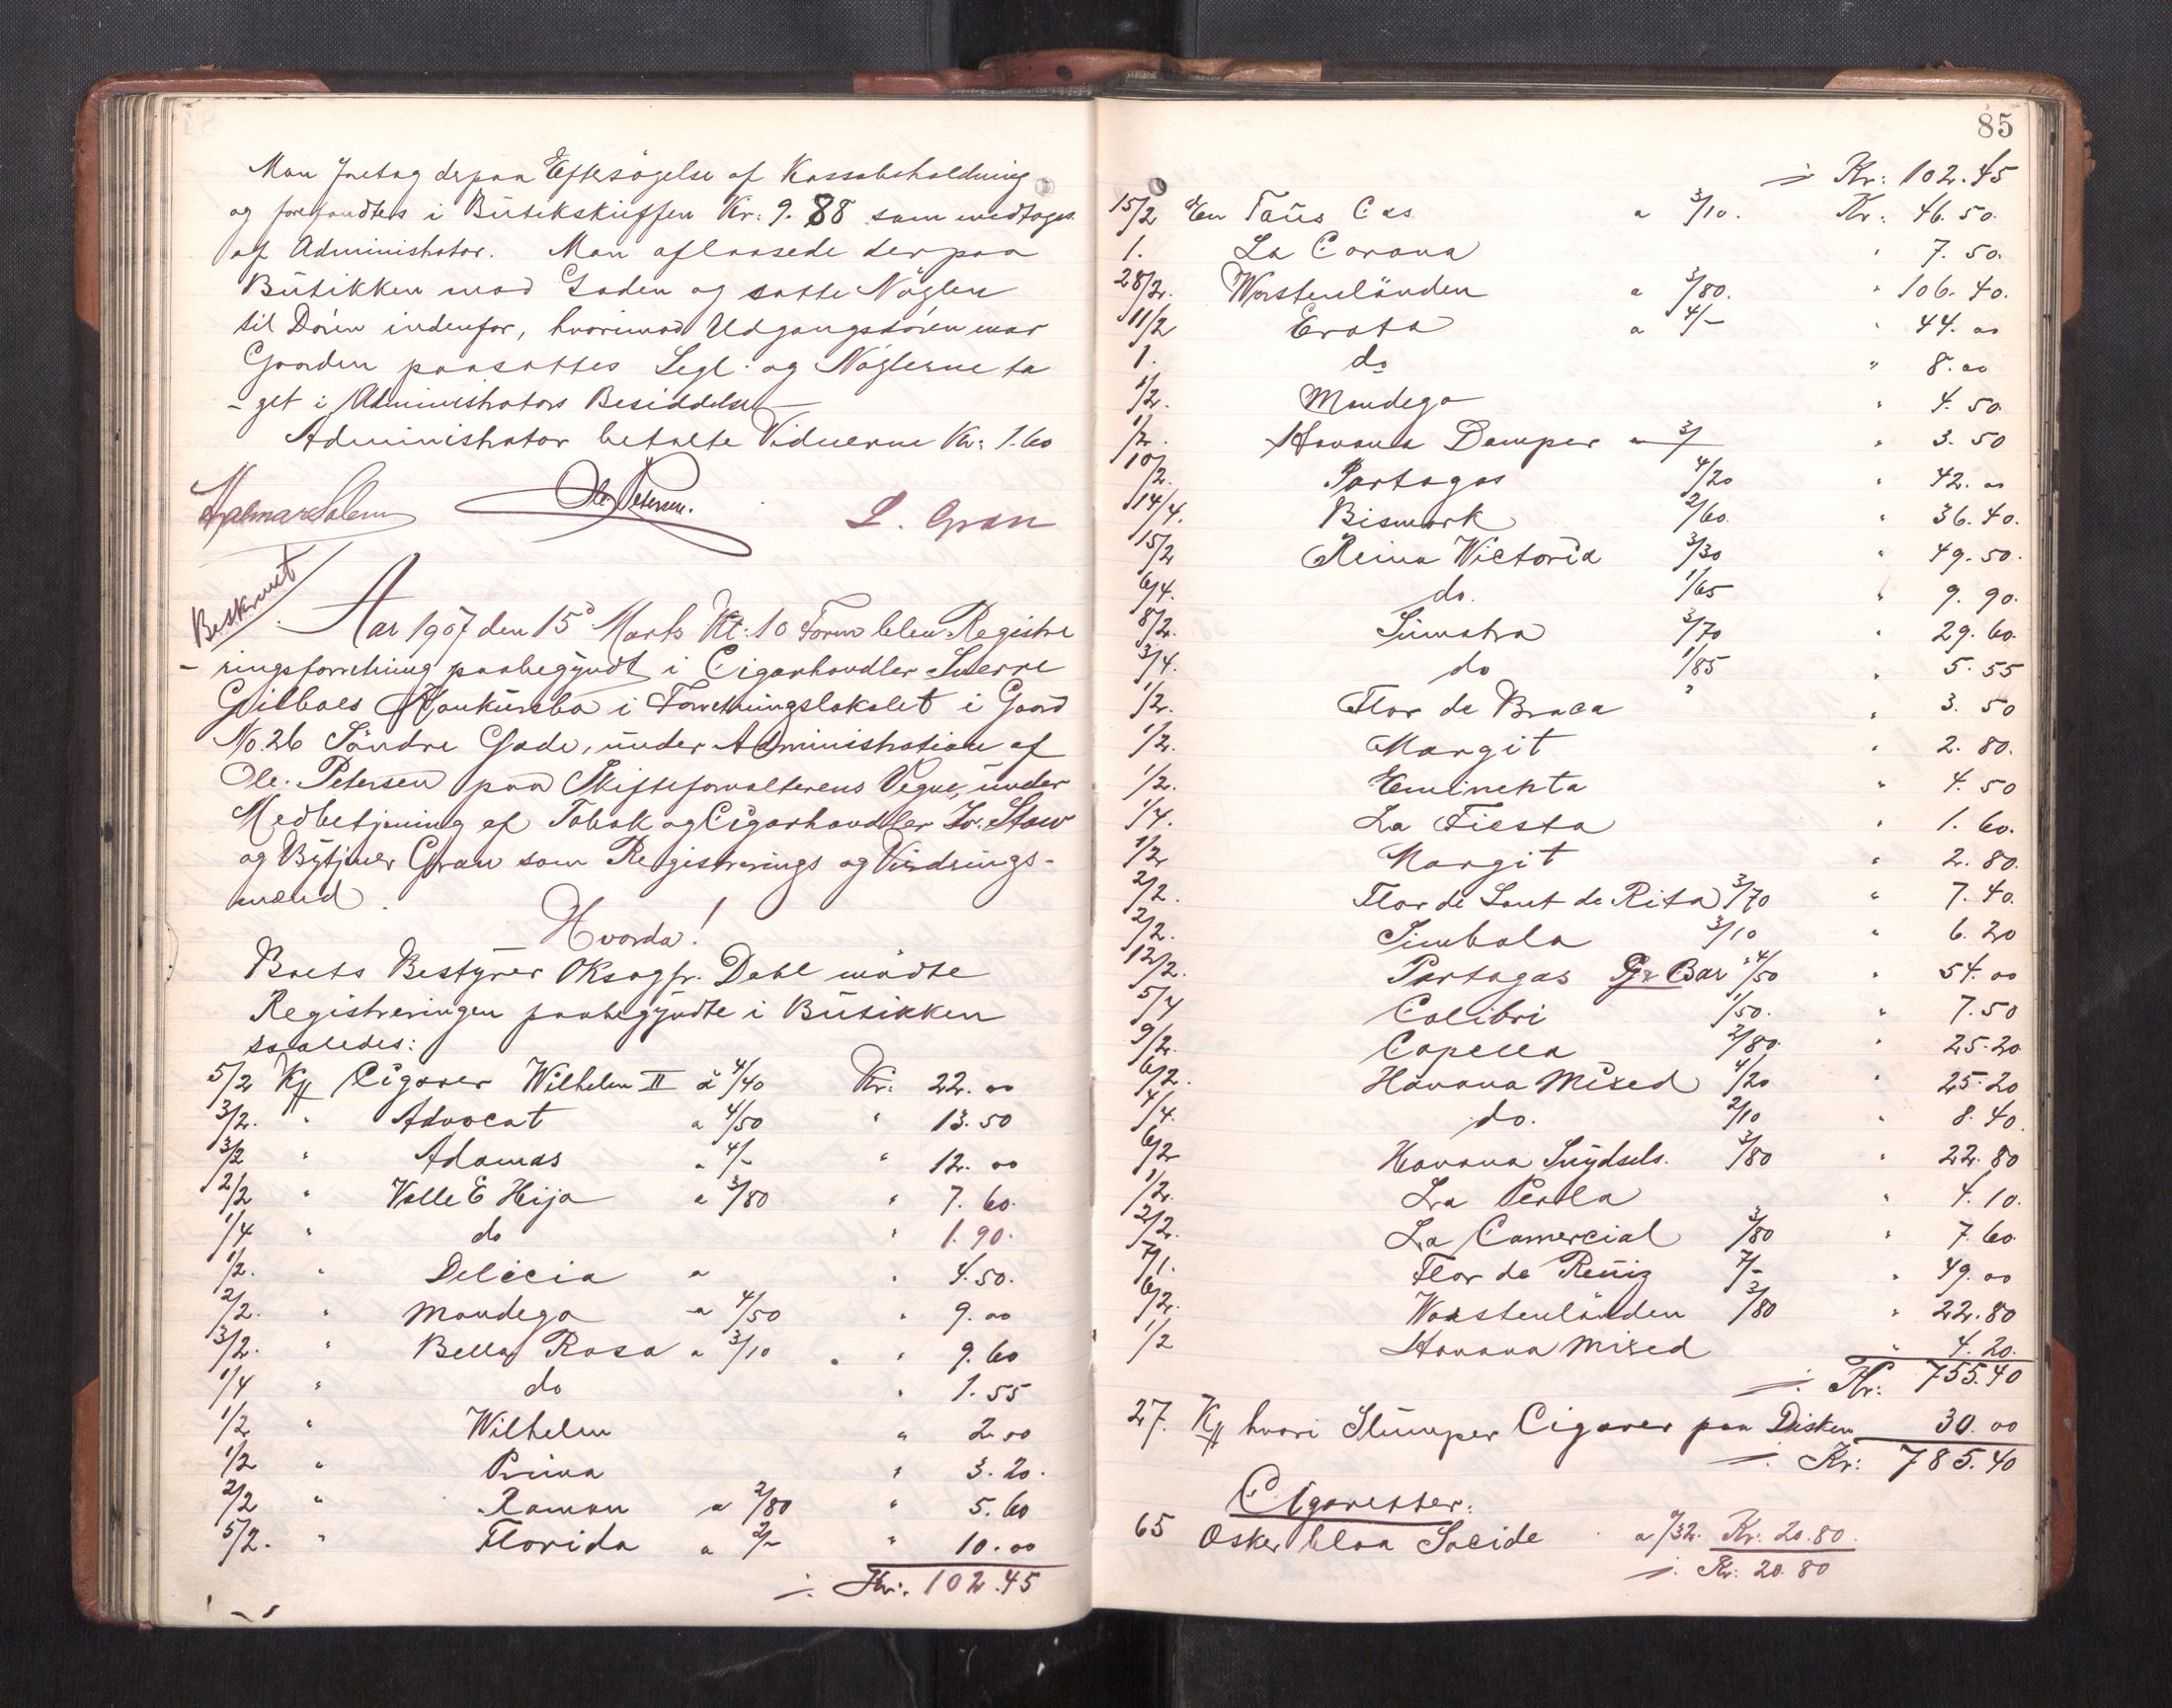 Man foretog derpaa Eftersøgelse af Kassabeholdning
og forefandtes i Butikskuffen Kr: 9.88 som medtoges
af Administrator. Man aflaasede derpaa
Butikken mod Gaden og satte Nøglen
til Døren indenfor, hvorimod Udgangsdøren mod
Gaarden paasattes Segl og Nøglerne ta
- get i Administrators Besiddelse
Administrator betalte Vidnerne Kr: 1.60
Hjalmar Salem Ole Petersen. L. Gran
Beskrevet
Aar 1907 den 15de Marts Kl: 10 Form blev Registre
- ringsforretning paabegyndt i Cigarhandler Sverre
Gilboes Konkursbo i Forretningslokalet i Gaard
No. 26 Søndre Gade, under Administration af
Ole Petersen paa Skifteforvalterens Vegne, under
Medbetjening af Tobak og Cigarhandler Stav
og Bytjener Gran som Registrerings og Vurderings-
mænd.
Hvorda!
Boets Bestyrer OKsagfr. Dahl mødte
Registreringen paabegyndte i Butikken
saaledes:
5/2 Ks Cigarer Wilhelm II à 4/40 Kr: 22.00
3/2. " Advocat a 4/50 " 13.50
3/2 " Adamas a 4/- " 12.00
2/2 " Valle E Hija a 3/80 " 7.60.
1/4 " do " 1.90.
1/2. " Delicia a " 4.50.
2/2. " Mondega a 4/50 " 9.00
3/2. " Bella Rosa a 3/10 " 9.60
1/4 " do " 1.55
1/2 " Wilhelm " 2.00
1/2 " Prima " 3.20.
2/2 " Ramon a 2/80 " 5.60
5/2. " Florida a 2/- " 10.00
Kr: 102.45
85
Kr: 102.45
15/2 En Tous Cas a 3/10. Kr: 46.50.
1. La Corona " 7.50.
28/2. Worstenländen a 3/80. " 106.40.
11/2 Erota a 4/- " 44.00
1. do " 8.00
1/2. Mondega " 4.50.
1/2. Havana Damper a 3/ " 3.50
10/2. Partagas 4/20 " 42.00
14/4. Bismark 2/60. " 36.40.
15/2 Reina Victoria 3/30 " 49.50.
6/4. do. 1/65 " 9.90.
8/2. Sumatra 3/70 " 29.60.
3/4. do 1/85 " 5.55
1/2. Flor de Braca " " 3.50
1/2. Margit " 2.80.
1/2. Eminenta " 4.50
1/4. La Fiesta " 1.60.
1/2 Margit " 2.80.
2/2. Flor de Sant de Rita 3/70 " 7.40.
2/2. Simbola 3/10 " 6.20
12/2. Partagas Bar 4/50 " 54.00
5/4 Colibri 1/50. " 7.50
9/2. Capella 2/80. " 25.20
6/2. Havana Mixed 4/20 " 25.20
4/4. do. 2/10 " 8.40.
6/2 Havana Snydsels. 3/80 " 22.80
1/2. La Perla " 4.10.
2/2. La Comercial 3/80 " 7.60
7/1. Flor de 7/- " 49.00
6/2. Worstenländen 3/80 " 22.80
1/2 Havana Mixed " 4.20.
Kr: 755.40
27. Ks hvori Stumper Cigarer paa Disken 30.00
Kr: 785.40
Cigaretter:
65 Æsker blaa a "/32. Kr: 20.80.
Kr: 20.80